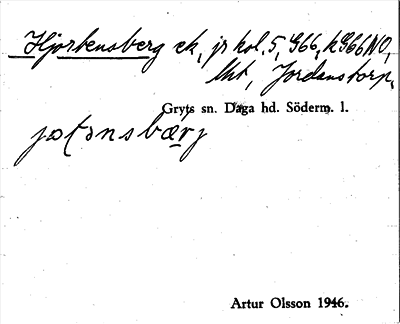 Hjortensberg ek, jr kol. 5, G66, kG66NO,
Uht, Jordanstorp,
Gryts sn. Daga hd. Söderm. l.
jøtənsbærj
Artur Olsson 1946.